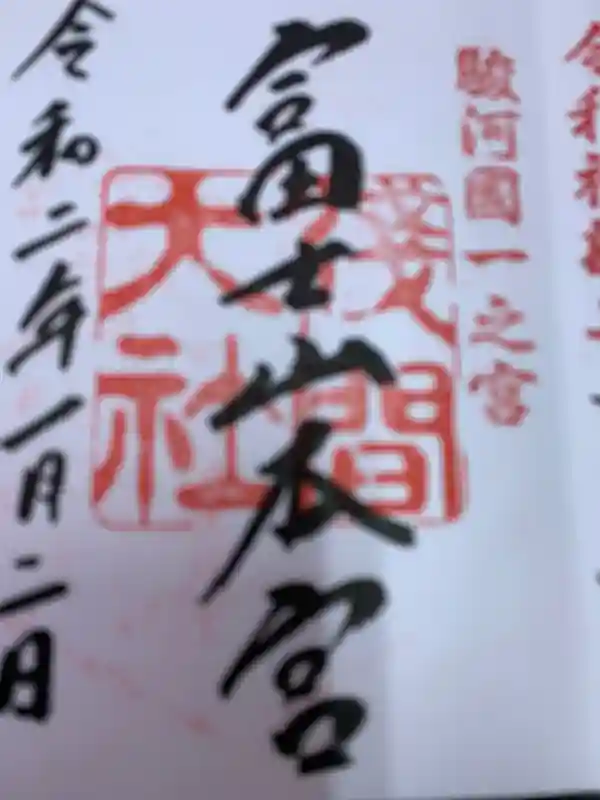 駿河國一之宮
富士山本宮
淺間
大社
令和二年一月二日